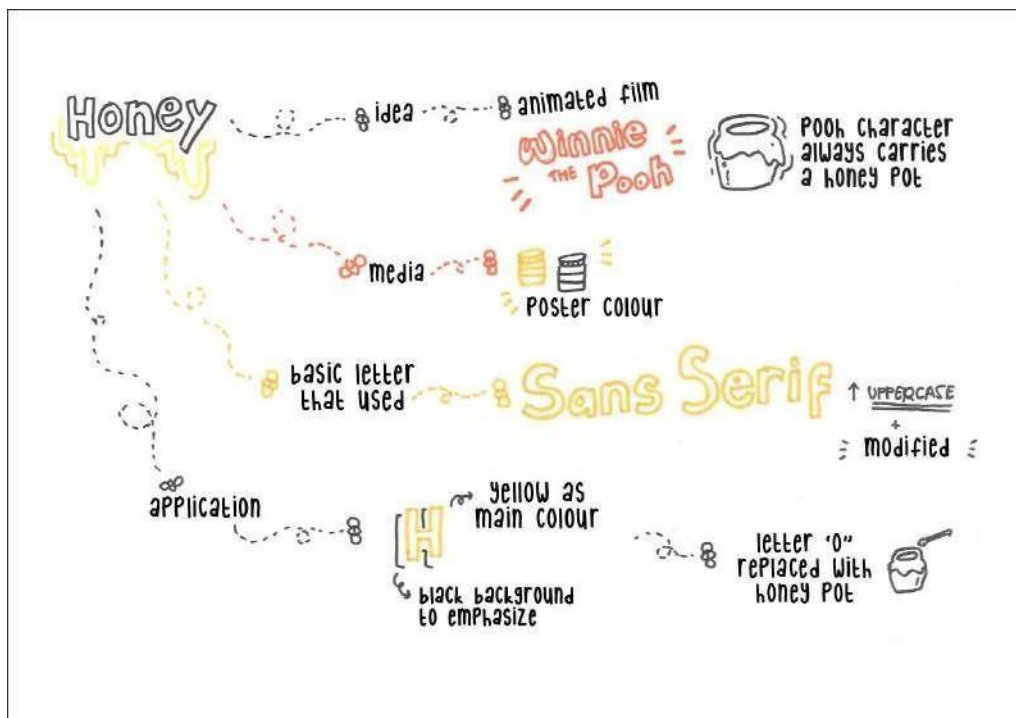 Honey
idea
animated film
Winnie
THE Pooh
Pooh character
always carries
a honey pot
media
poster colour
basic letter
that used
Sans Serif
↑ UPPERCASE
+
modified
application
H
yellow as
main colour
black background
to emphasize
letter "O"
replaced with
honey pot